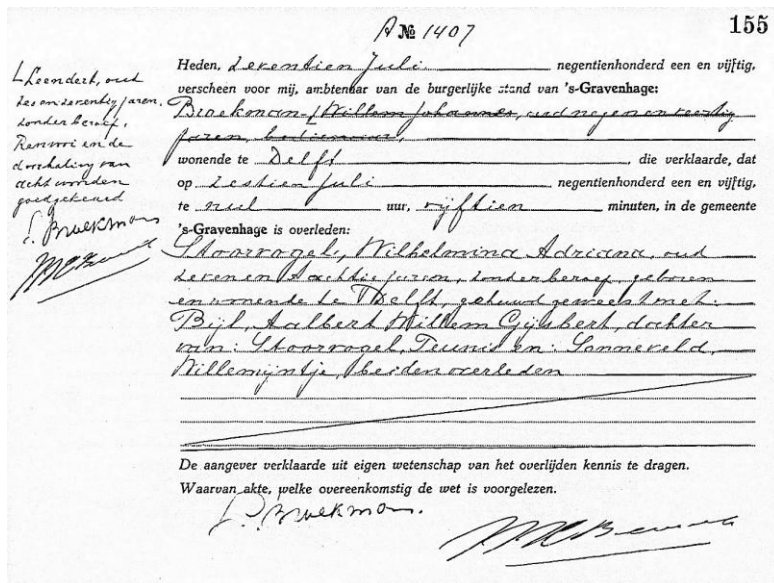 155
A № 1407
Heden, zeventien Juli negentienhonderd een en vijftig,
verscheen voor mij, ambtenaar van de burgerlijke stand van 's-Gravenhage:
Broekman, Willem Johannes, oud negenenveertig
jaren, bedienaar,
wonende te Delft, die verklaarde, dat
op zestien Juli negentienhonderd een en vijftig,
te nul uur, vijftien minuten, in de gemeente
's-Gravenhage is overleden:
Stoorvogel, Wilhelmina Adriana, oud
zeven en tachtig jaren, zonder beroep, geboren
en wonende te Delft, gehuwd geweest met:
Bijl, Aalbert Willem Gijsbert, dochter
van: Stoorvogel, Teunis en: Sonneveld,
Willemijntje, beiden overleden
De aangever verklaarde uit eigen wetenschap van het overlijden kennis te dragen.
Waarvan akte, welke overeenkomstig de wet is voorgelezen.
L. Broekman.
Leendert, oud
zes en zeventig jaren,
zonder beroep,
Renvooi en de
doorhaling van
acht woorden
goedgekeurd
L. Broekman